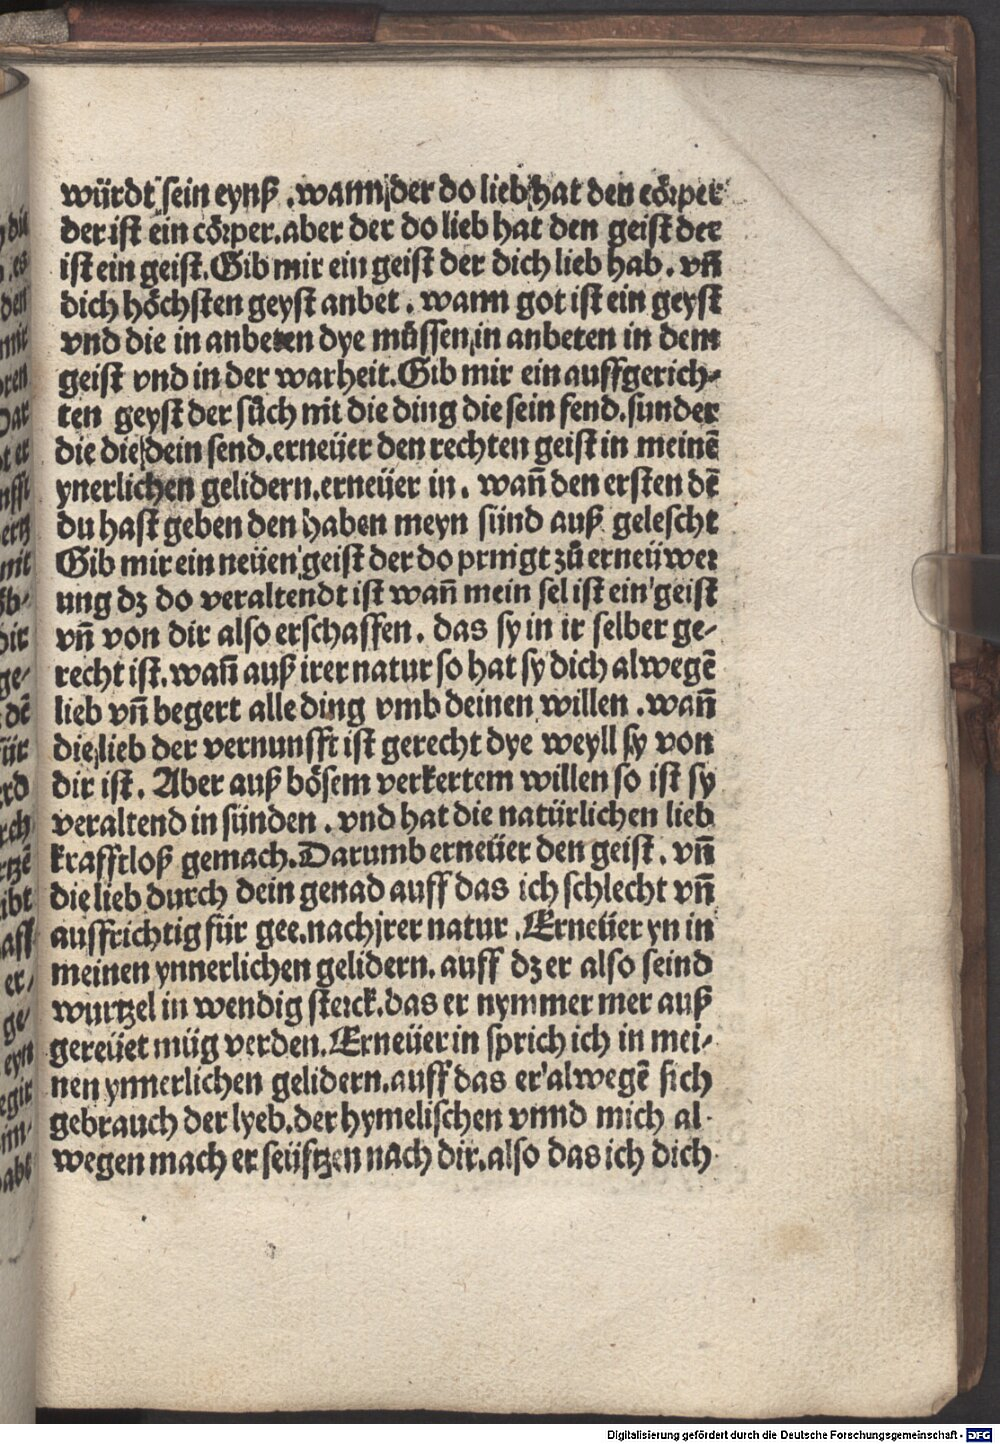 würdt sein eynß . wann der do lieb hat den cörper
der ist ein cörper. aber der do lieb hat den geist der
ist ein geist. Gib mir ein geist der dich lieb hab . vn̄
dich höchsten geyst anbet . wann got ist ein geyst
vnd die in anbeten dye müssen in anbeten in dem
geist vnd in der warheit. Gib mir ein auffgerich-
ten geyst der sůch nit die ding die sein send. sunder
die die dein send. erneüer den rechten geist in meinē
ynerlichen gelidern. erneüer in . wan̄ den ersten dē
du hast geben den haben meyn sünd auß gelescht
Gib mir ein neüen geist der do prnigt zů erneüwer
ung dz do veraltendt ist wan̄ mein sel ist ein geist
vn̄ von dir also erschaffen . das sy in ir selber ge-
recht ist. wan̄ auß irer natur so hat sy dich alwegē
lieb vn̄ begert alle ding vmb deinen willen . wan̄
die lieb der vernunfft ist gerecht dye weyll sy von
dir ist . Aber auß bösem verkertem willen so ist sy
veraltend in sünden . vnd hat die natürlichen lieb
krafftloß gemach. Darumb erneüer den geist . vn̄
die lieb durch dein genad auff das ich schlecht vn̄
auffrichtig für gee. nach jrer natur . Erneüer yn in
meinen ynnerlichen gelidern. auff dz er also seind
wurtzel in wendig sterck. das er nymmer mer auß
gereüet müg verden. Erneüer in sprich ich in mei-
nen ynnerlichen gelidern. auff das er alwegē sich
gebrauch der lyeb. der hymelischen vnnd mich al-
wegen mach er seüftzen nach dir. also das ich dich
Digitalisierung gefördert durch die Deutsche Forschungsgemeinschaft - DFG